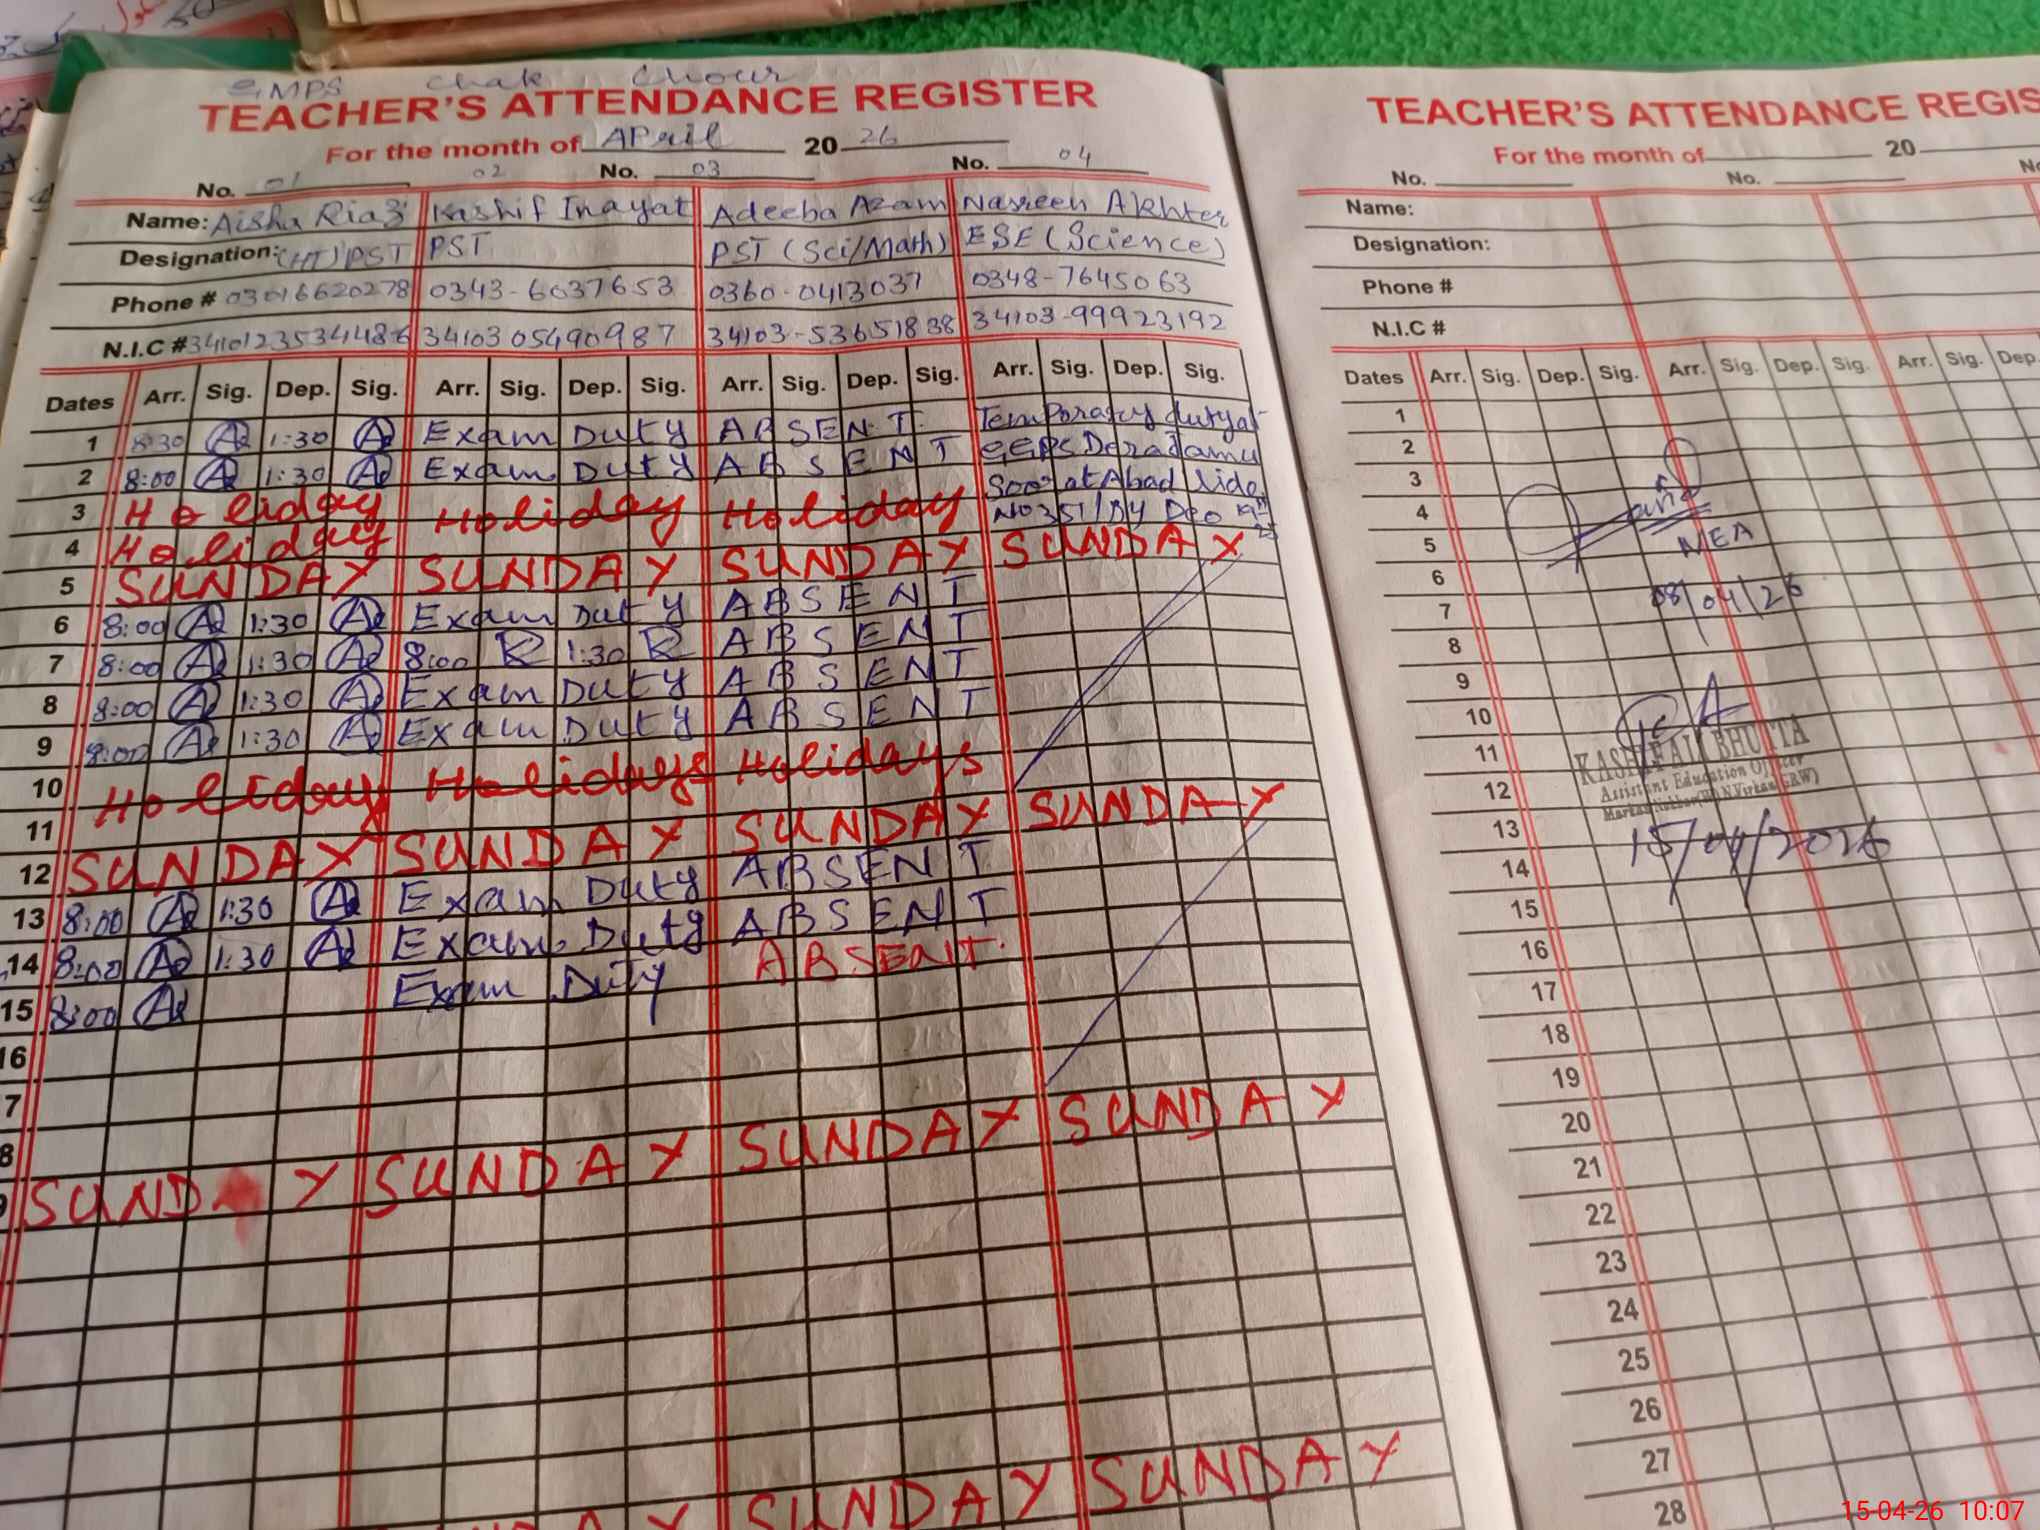 GMPS Chak Chour
TEACHER'S ATTENDANCE REGISTER
For the month of April 2026
No. 01 02 No. 03 No. 04
Name: Aisha Riaz Kashif Inayat Adeeba Azam Nasreen Akhter
Designation: (HT) PST PST PST (Sci/Math) ESE (Science)
Phone # 03016620278 0343-6037653 0360-0413037 0348-7645063
N.I.C # 3410123534486 3410305490987 34103-53651838 34103-99923192
Dates Arr. Sig. Dep. Sig. Arr. Sig. Dep. Sig. Arr. Sig. Dep. Sig. Arr. Sig. Dep. Sig.
1 8:30 1:30 Exam Duty ABSENT Temporary duty at
2 8:00 1:30 Exam Duty ABSENT GGPS
3 Holiday Holiday Holiday at Abad
4 Holiday No 351 By Deo
5 SUNDAY SUNDAY SUNDAY SUNDAY
6 8:00 1:30 Exam Duty ABSENT
7 8:00 1:30 8:00 1:30 ABSENT
8 8:00 1:30 Exam Duty ABSENT
9 8:00 1:30 Exam Duty ABSENT
10 Holiday Holidays Holidays
11
12 SUNDAY SUNDAY SUNDAY SUNDAY
13 8:00 1:30 Exam Duty ABSENT
14 8:00 1:30 Exam Duty ABSENT
15 8:00 Exam Duty ABSENT
16
7
8
9 SUNDAY SUNDAY SUNDAY SUNDAY
SUNDAY SUNDAY
TEACHER'S ATTENDANCE REGIS
For the month of 20
No. No. No
Name:
Designation:
Phone #
N.I.C #
Dates Arr. Sig. Dep. Sig. Arr. Sig. Dep. Sig. Arr. Sig. Dep.
1
2
3
4
5 MEA
6
7 08/04/26
8
9
10
11 KASHIF ALI BHUTTA
12 Assistant Education Officer
13
14 15/04/2026
15
16
17
18
19
20
21
22
23
24
25
26
27
28
15-04-26 10:07